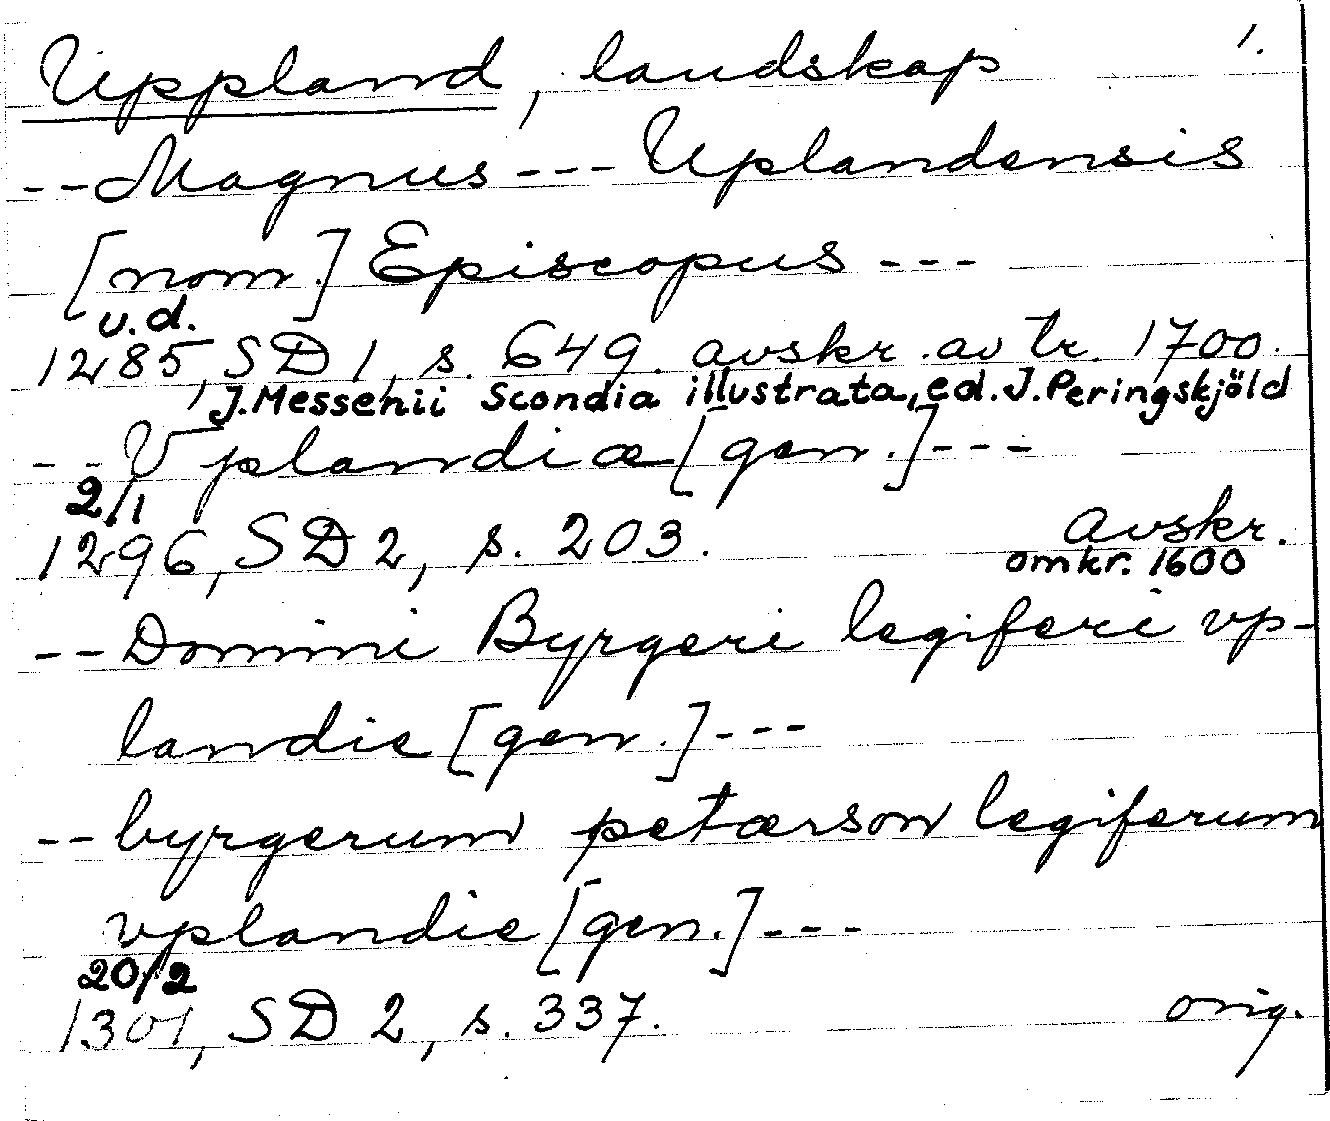 Uppland, landskap 1.
--Magnus---Uplandensis
[nom.] Episcopus---
u.d.
1285, SD 1, s. 649. avskr. av tr. 1700.
J. Messenii Scondia illustrata, ed. J. Peringskjöld
--Vplandiæ [gen.]---
2/1
1296, SD 2, s. 203. avskr.
omkr. 1600
--Domini Byrgeri legiferi vp-
landie [gen.]---
--byrgerum petærson legiferum
vplandie [gen.]---
20/2
1301, SD 2, s. 337. orig.